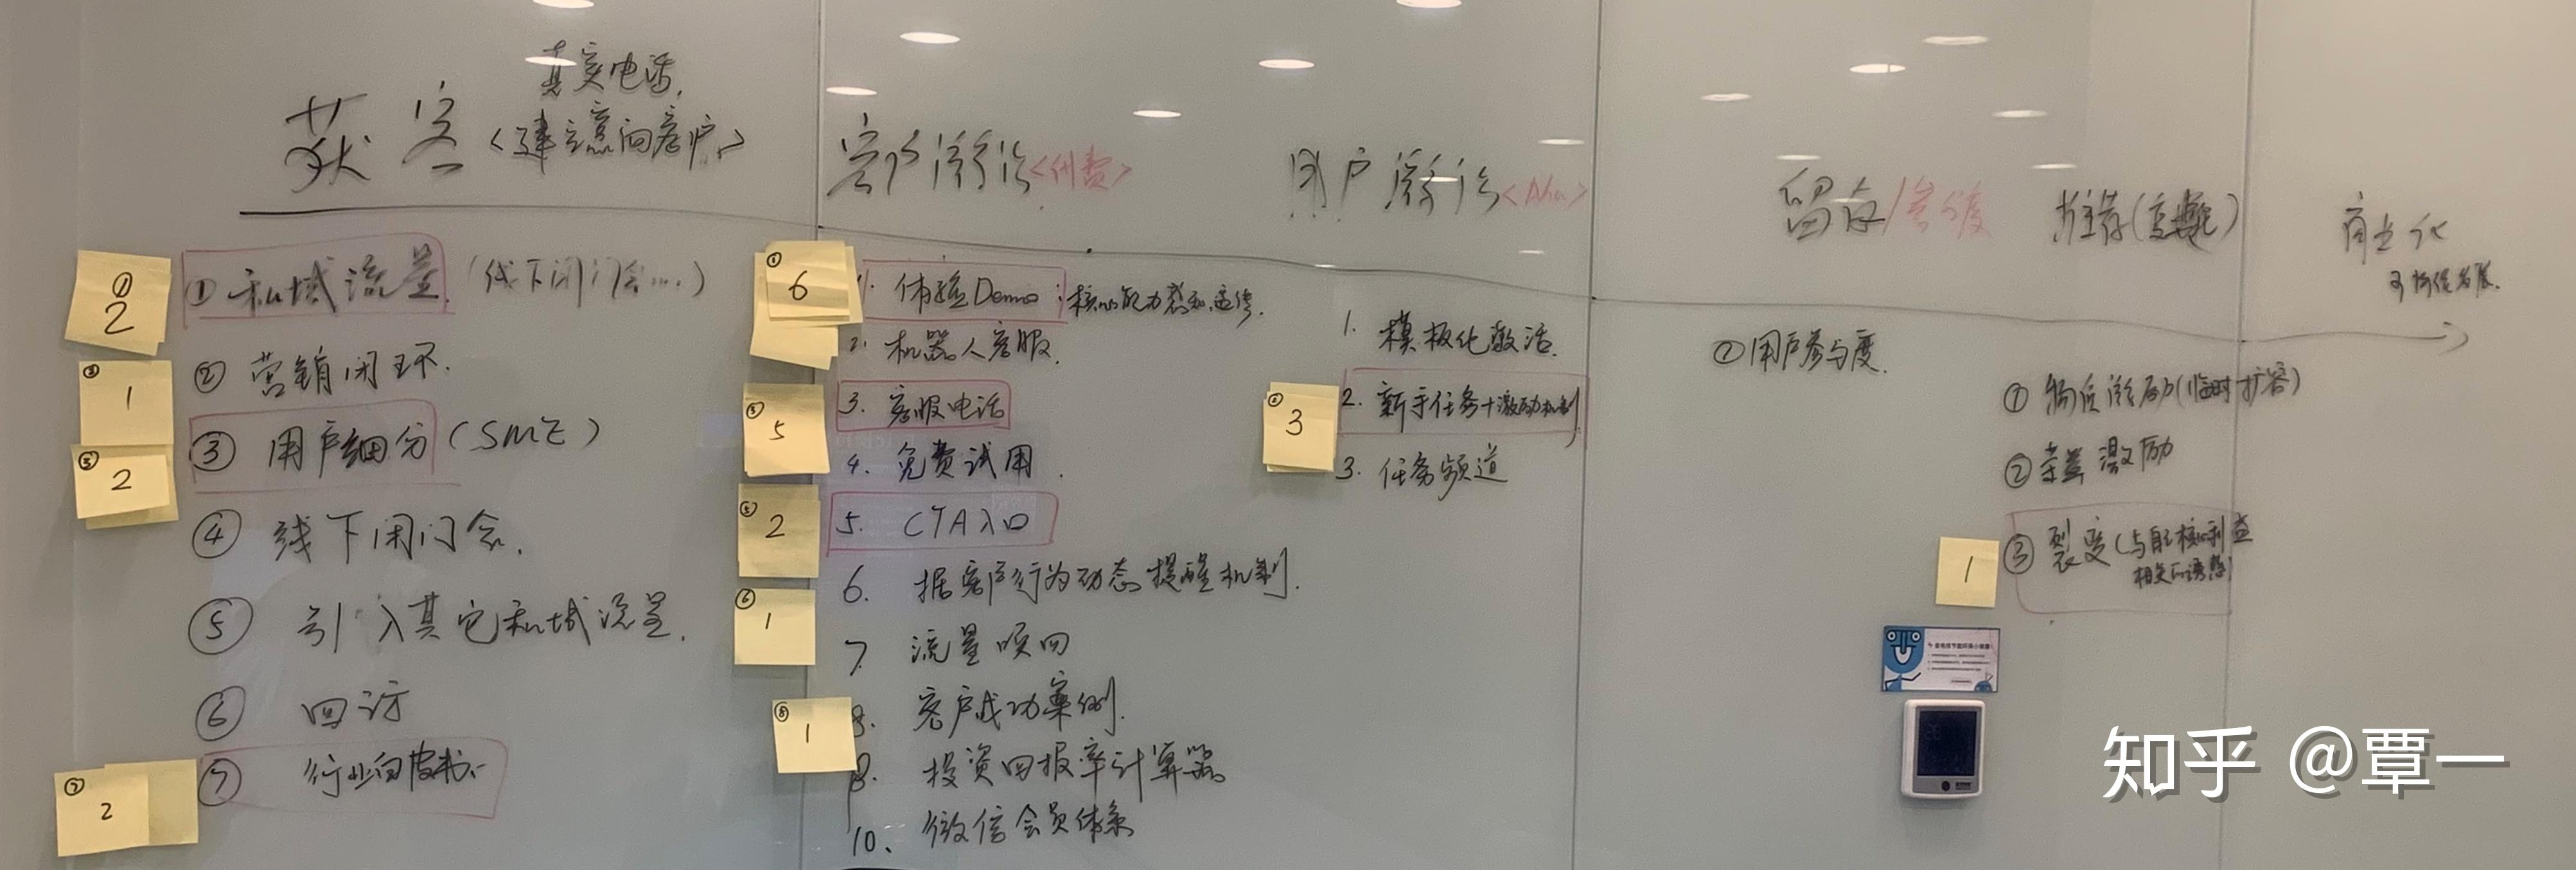 真实电话,
获客<建立意向客户>
客户激活<付费>
用户激活<Aha>
留存/参与度
推荐
商业化
① 2
① 私域流量 (线下闭门会...)
② 营销闭环.
③ 1
③ 用户细分 (SME)
③ 2
④ 线下闭门会.
⑤ 引入其它私域流量.
⑥ 回访
⑦ 行业白皮书
⑦ 2
① 6
1. 体验Demo: 核心能力感知
2. 机器人客服.
③ 5
3. 客服电话
4. 免费试用.
⑤ 2
5. CTA入口
⑥ 1
6. 据客户行为动态提醒机制.
7. 流量
⑧ 1
8. 客户成功案例.
9. 投资回报率计算器
10. 微信会员体系
1. 模板化激活.
② 3
2. 新手任务+激励机制
3. 任务频道
① 用户参与度.
① 物质激励(临时扩容)
② 荣誉激励
1
③ 裂变(与自己核心利益
相关的诱惑)
知乎 @覃一